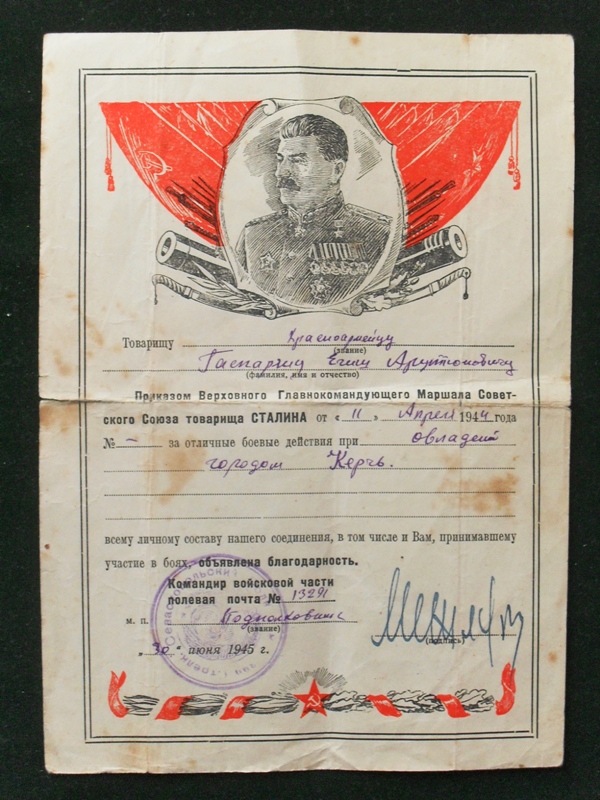 Товарищу Красноармейцу
(звание)
Гаспарянц Егиш Арутюновичу
(фамилия, имя и отчество)
Приказом Верховного Главнокомандующего Маршала Совет-
ского Союза товарища СТАЛИНА от «11» Апреля 1944 года
№ – за отличные боевые действия при овладении
городом Керчь.
всему личному составу нашего соединения, в том числе и Вам, принимавшему
участие в боях, объявлена благодарность.
Командир войсковой части
полевая почта № 13291
м. п. Подполковник
(звание)
(подпись)
„30“ июня 1945 г.
Севастопольский